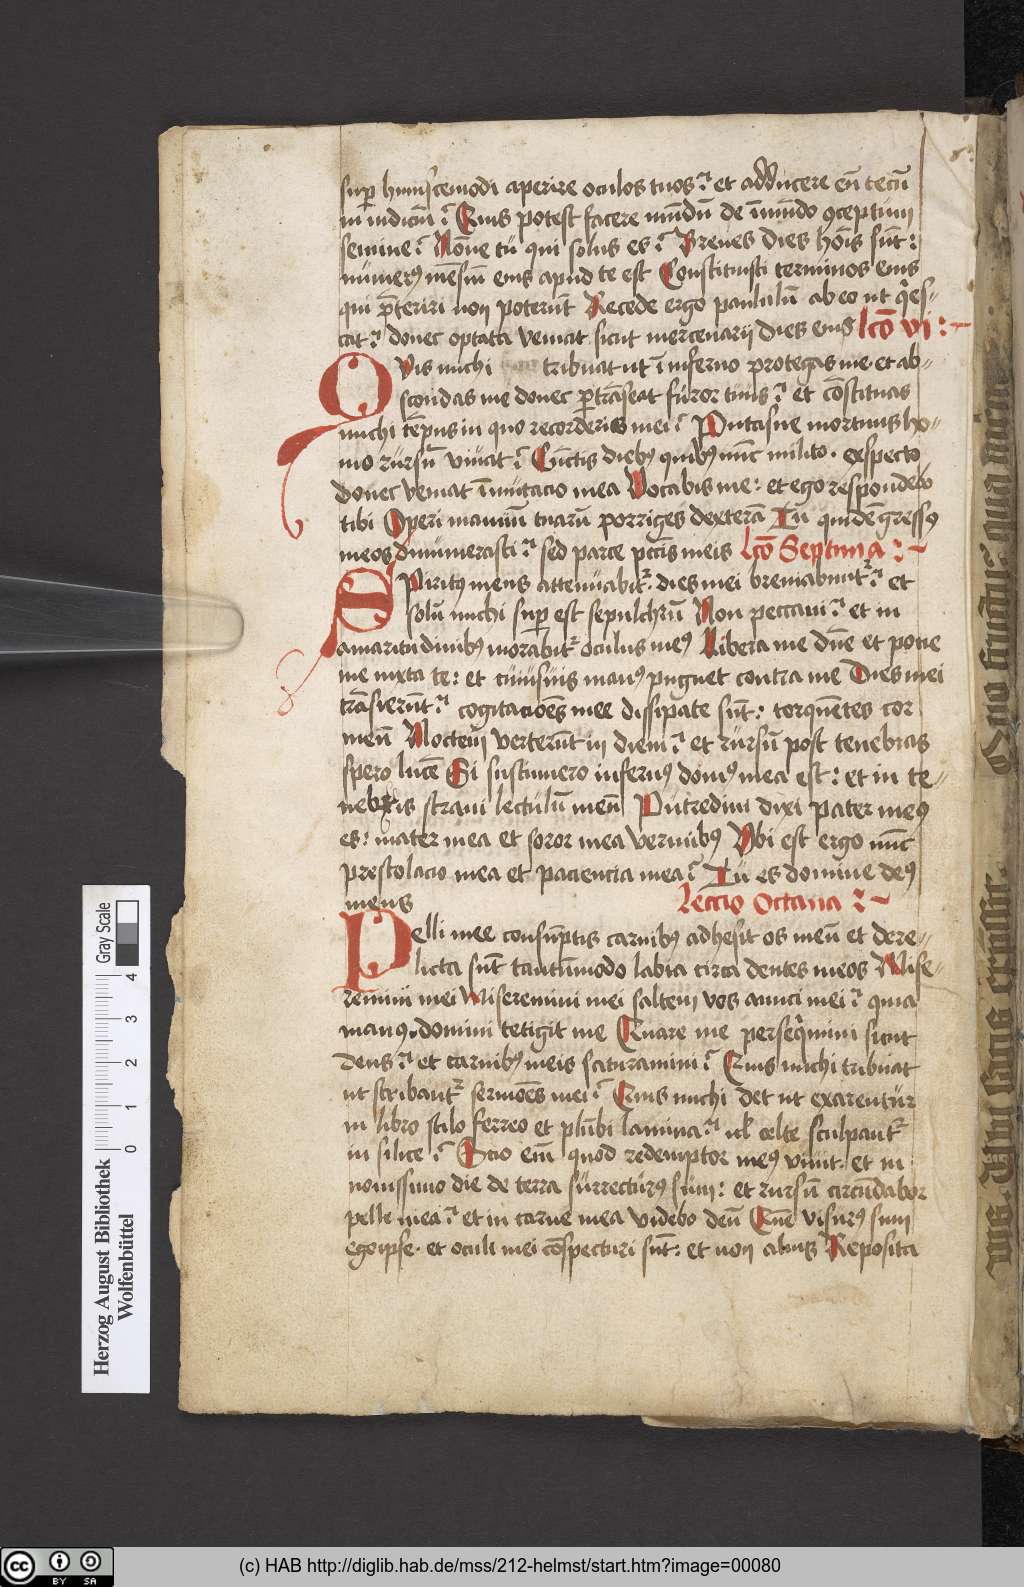 sup̱ huiuscemodi aperire oculos tuos et adducere eū tecū
in iudiciū Quis potest facere mūdū de īmūdo ꝯceptum
semine Nōne tu qui solus es Breues dies hōis sūt :
numerꝰ mēsiū eius apud te est Constituisti terminos eius
qui p̄teriri non poterūt Recede ergo paululū ab eo ut q̄es-
cat donec optata veniat sicut mercenarij dies eius lcō vi :~
Quis michi tribuat ut ī inferno protegas me · et ab-
scondas me donec ꝑtrāseat furor tuus et cōstituas
michi tēpus in quo recorderis mei Putasne mortuus ho-
mo rursū viuat Cūctis diebꝰ quibꝰ nūc milito · exspecto
donec veniat īmutacio mea Vocabis me : et ego respondebo
tibi Operi manuū tuarū porriges dexterā Tu quidē gressꝰ
meos dinumerasti sed parce pctīs meis lcō Septima :~
Spiritꝰ meus attenuabit᷑ · dies mei breuiabunt᷑ et
solū michi sup̱ est sepulchrū Non peccaui et in
amaritudinibꝰ morabit᷑ oculus meꝰ Libera me dn̄e et pone
me iuxta te : et cuiusuis manꝰ pugnet contra me Dies mei
trāsierūt cogitacioēs mee dissipate sūt : torquētes cor
meū Noctem verterūt in diem et rursū post tenebras
spero lucē Si sustinuero infernꝰ domꝰ mea est : et in te-
nebris straui lectulū meū Putredini dixi pater meꝰ
es : mater mea et soror mea vermibꝰ Vbi est ergo nūc
prestolacio mea et paciencia mea Tu es domine deꝰ
meus Leccio Octaua :~
Pelli mee consūptis carnibꝰ adhesit os meū et dere-
licta sūt tantūmodo labia circa dentes meos Mise-
remini mei Miseremini mei saltem vos amici mei quia
manꝰ domini tetigit me Quare me perseq̄mini sicut
deus et carnibꝰ meis saturamini Quis michi tribuat
ut scribant᷑ sermoēs mei Quis michi det ut exarentur
in libro stilo ferreo et plūbi lamina ul celte sculpant᷑
in silice Scio em̄ quod redemptor meꝰ viuit · et in
nouissimo die de terra surrecturꝰ sum : et rursū circūdabor
pelle mea et in carne mea videbo deū Quē visurꝰ sum
ego ipse · et oculi mei cōspecturi sūt : et non alius Reposita
Herzog August Bibliothek
Wolfenbüttel
0 1 2 3 4
Gray Scale
cc BY SA
(c) HAB http://diglib.hab.de/mss/212-helmst/start.htm?image=00080